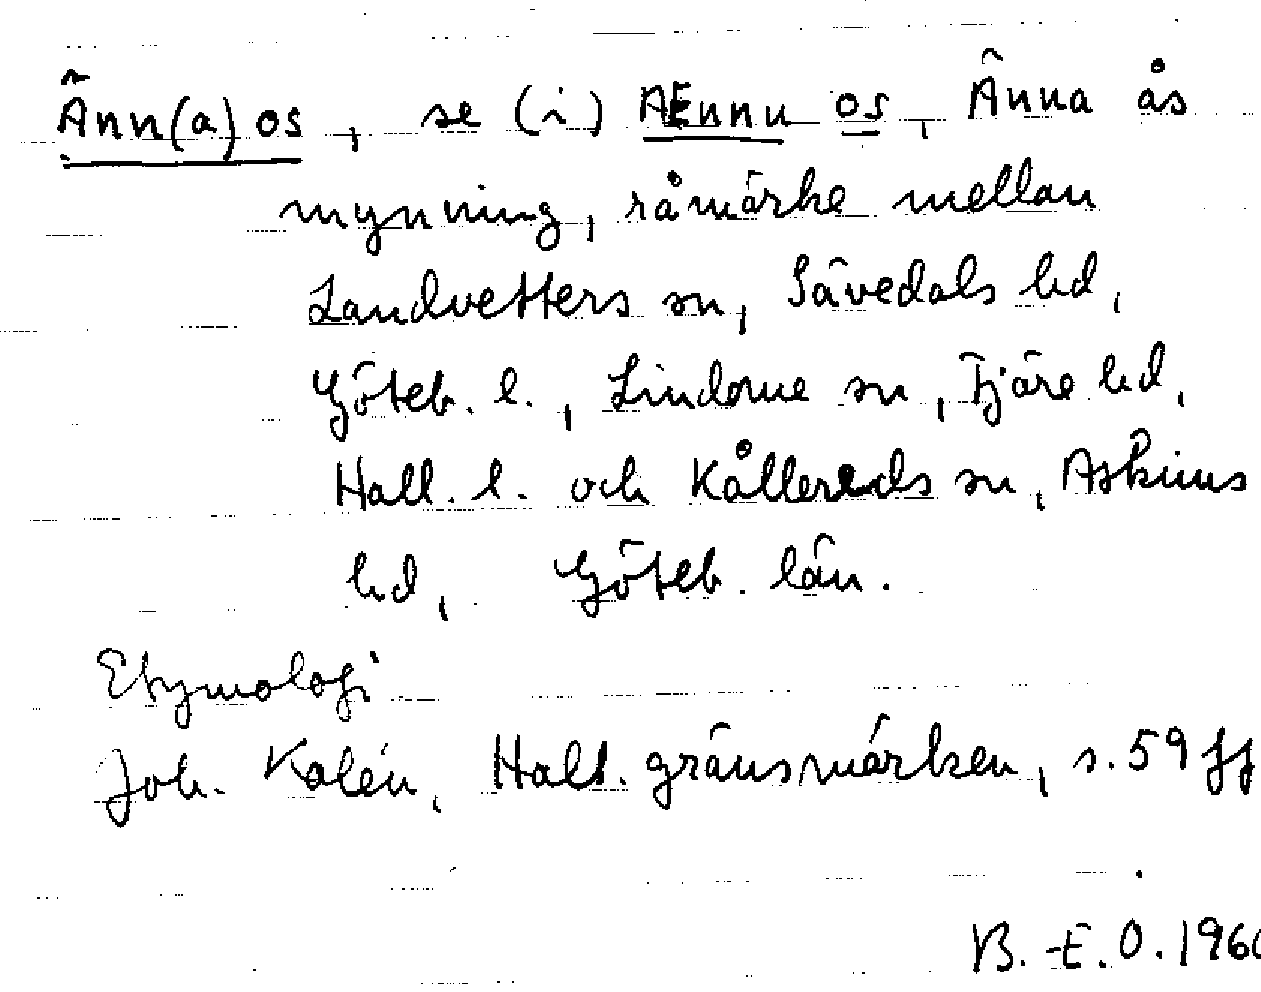 Änn(a) os, se (i) AEnnu os, Änna ås
mynning, råmärke mellan
Landvetters sn, Sävedals hd,
Göteb. l., Lindome sn, Fjäre hd,
Hall. l. och Kållereds sn, Askims
hd, Göteb. län.
Etymologi
Joh. Kalén, Hall. gränsmärken, s. 59 ff
B.-E.O. 196